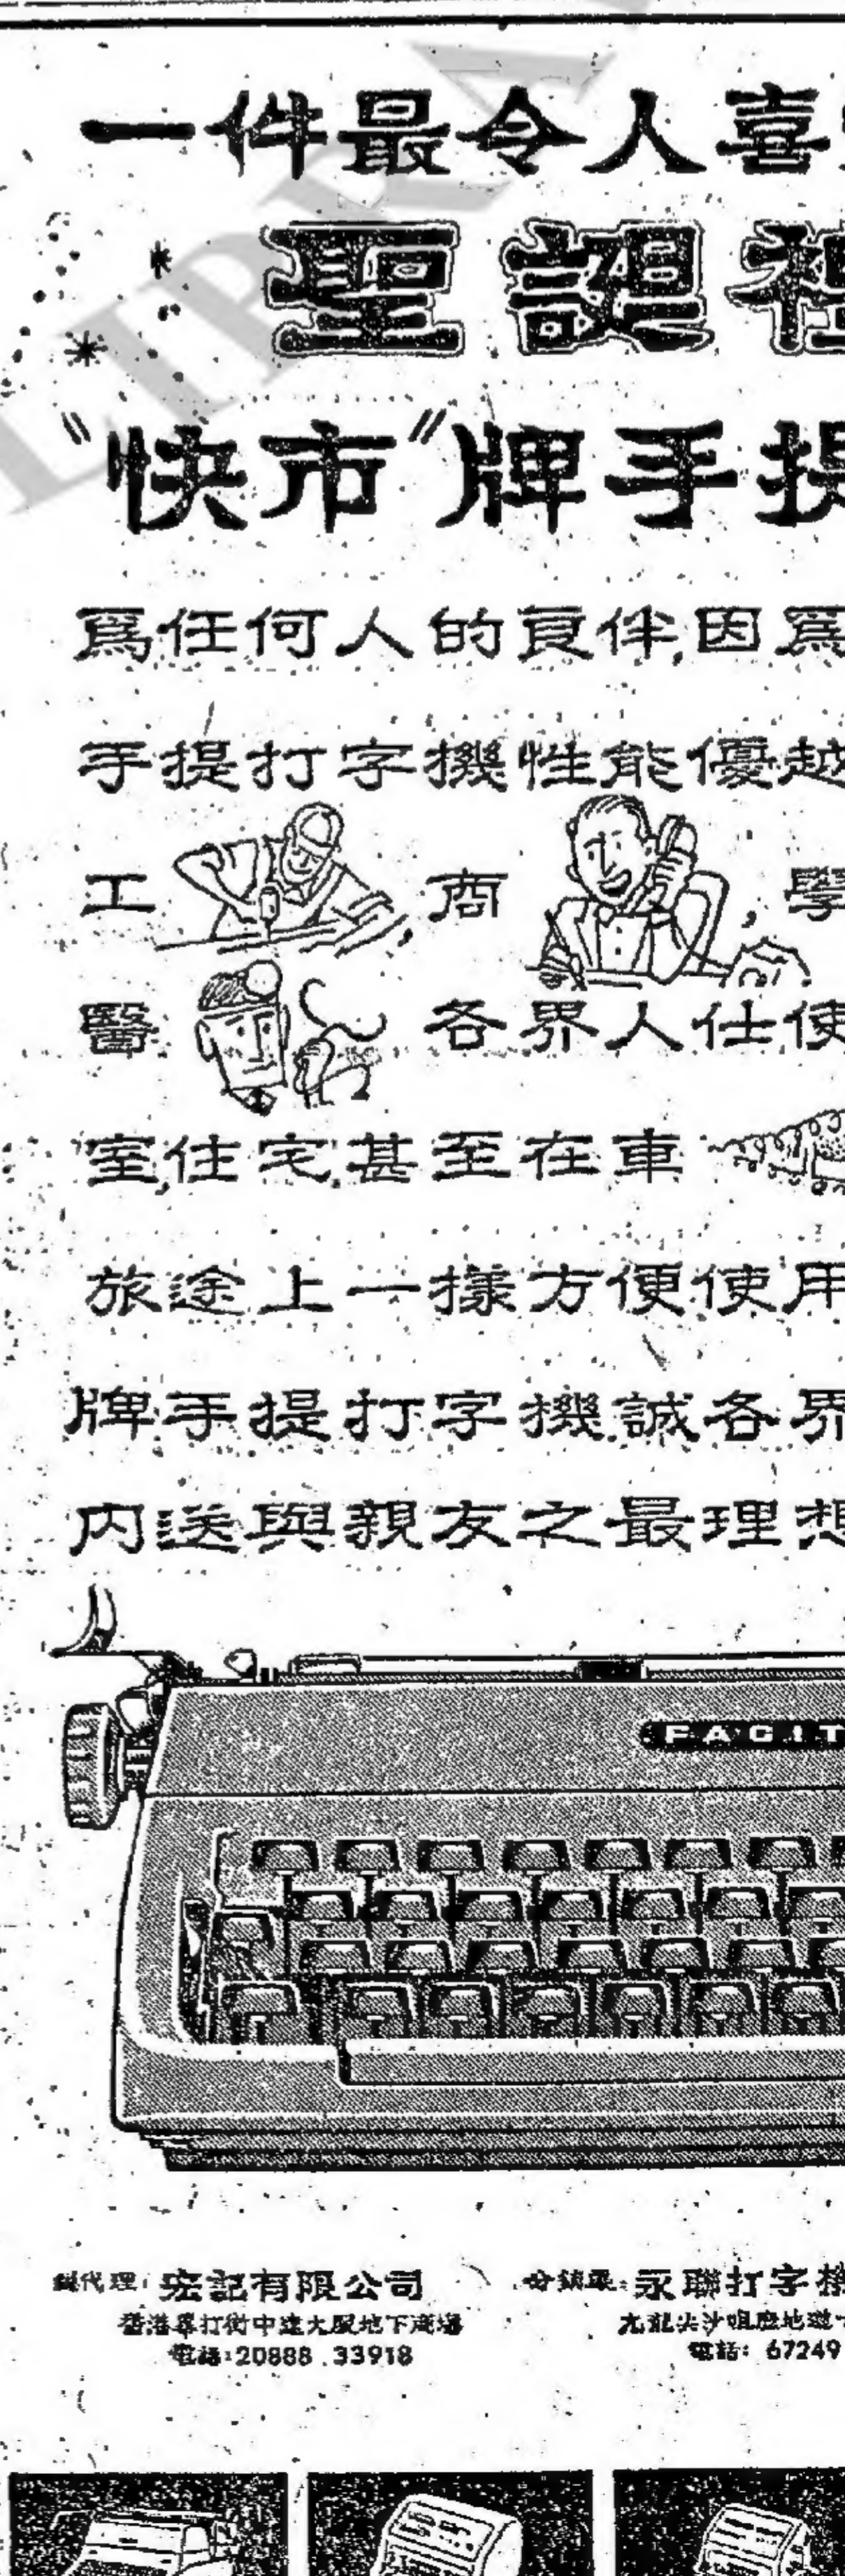 一件最令人喜
聖誕禮
"快市"牌手提
爲任何人的良伴,因爲
手提打字機性能優越
工,商,學
醫各界人仕使
室,住宅,甚至在車
旅途上一樣方便使用
牌手提打字機誠各界
内送與親友之最理想
FACIT
代理:宏記有限公司
香港畢打街中建大厦地下商場
電話:20888.33918
分銷處:永聯打字機
九龍尖沙咀
電話: 67249
LIBRA